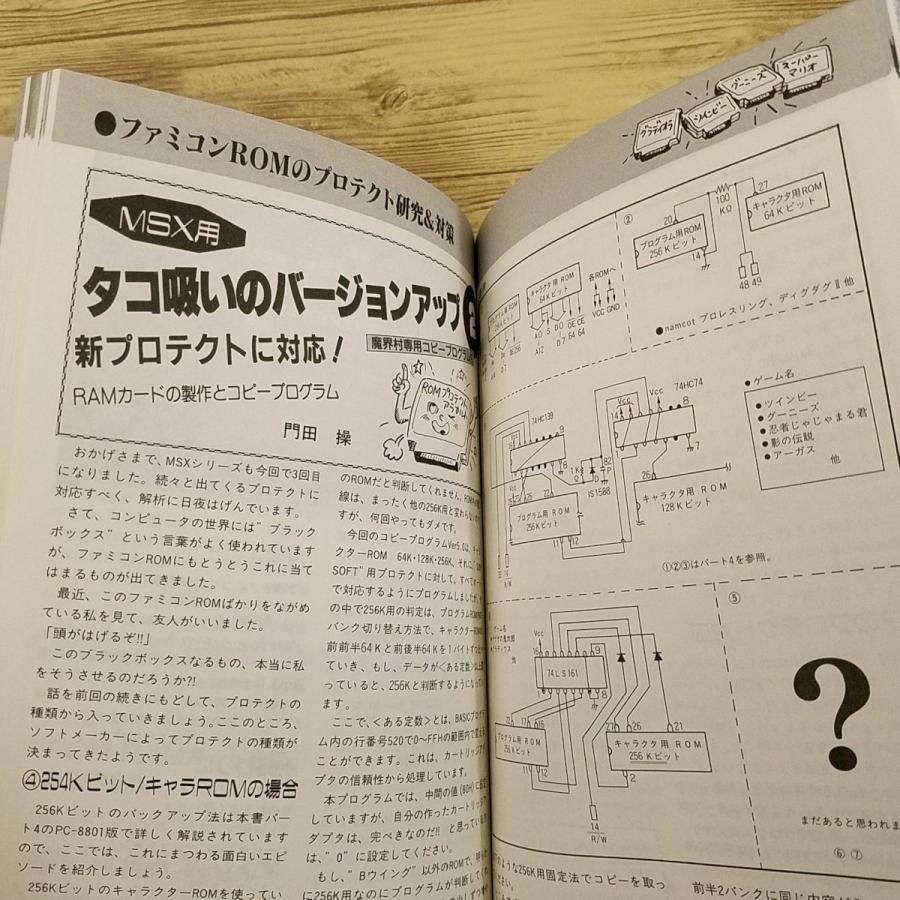 ●ファミコンROMのプロテクト研究&対策
MSX用
タコ吸いのバージョンアップ
新プロテクトに対応!
魔界村専用コピープログラム
RAMカードの製作とコピープログラム
門田 操
ROMプロテクト
おかげさまで、MSXシリーズも今回で3回目
になりました。続々と出てくるプロテクトに
対応すべく、解析に日夜はげんでいます。
さて、コンピュータの世界には"ブラック
ボックス"という言葉がよく使われています
が、ファミコンROMにもとうとうこれに当て
はまるものが出てきました。
最近、このファミコンROMばかりをながめ
ている私を見て、友人がいいました。
「頭がはげるぞ!!」
このブラックボックスなるもの、本当に私
をそうさせるのだろうか?!
話を前回の続きにもどして、プロテクトの
種類から入っていきましょう。ここのところ、
ソフトメーカーによってプロテクトの種類が
決まってきたようです。
④254Kビット/キャラROMの場合
256Kビットのバックアップ法は本書パー
ト4のPC-8801版で詳しく解説されています
ので、ここでは、これにまつわる面白いエピ
ソードを紹介しましょう。
256Kビットのキャラクター ROMを使ってい
のROMだと判断してくれません。
線は、まったく他の256K用と変わらない
すが、何回やってもダメです。
今回のコピープログラムVer5.0は、
クターROM 64K・128K・256K、それに
SOFT"用プロテクトに対して、すべて
で対応するようにプログラムしました。
の中で256K用の判定は、プログラムROM
バンク切り替え方法で、キャラクターROM
前前半64Kと前後半64Kを1バイトずつ
ていき、もし、データが<ある定数>以上
っていると、256Kと判断するようになって
ます。
ここで、<ある定数>とは、BASICプログ
ム内の行番号520で0〜FFHの範囲内で変え
ことができます。これは、カートリッジ
プタの信頼性から処理しています。
本プログラムでは、中間の値(80H)に設
していますが、自分の作ったカートリッジ
ダプタは、完ぺきなのだ!! と思っている
は、"0"に設定してください。
もし、"Bウイング"以外のROMで、
に256K用なのにプログラムが判断してく
グラディオラ
ツインビー
グーニーズ
スーパーマリオ
プログラム用ROM
256Kビット
キャラクタ用ROM
64Kビット
各ROMへ
VCC GND
②
20
プログラム用ROM
256Kビット
14
100
KΩ
27
キャラクタ用ROM
64Kビット
48 49
●namcot プロレスリング、ディグダグⅡ他
74HC139
プログラム用ROM
256Kビット
11 12
14
R/W
IS1588
Vcc
74HC74
26
キャラクタ用 ROM
128Kビット
●ゲーム名
●ツインビー
●グーニーズ
●忍者じゃじゃまる君
●影の伝説
●アーガス
他
①②③はパート4を参照。
ゲーム名
他
Vcc
16
9
74LS161
8
プログラム用 ROM
256Kビット
11 12
27 26 21
キャラクタ用 ROM
256Kビット
2
14
R/W
⑤
?
まだあると思われま
⑥ ⑦
のような256K用固定法でコピーを取っ
ださい。
前半2バンクに同じ内容が